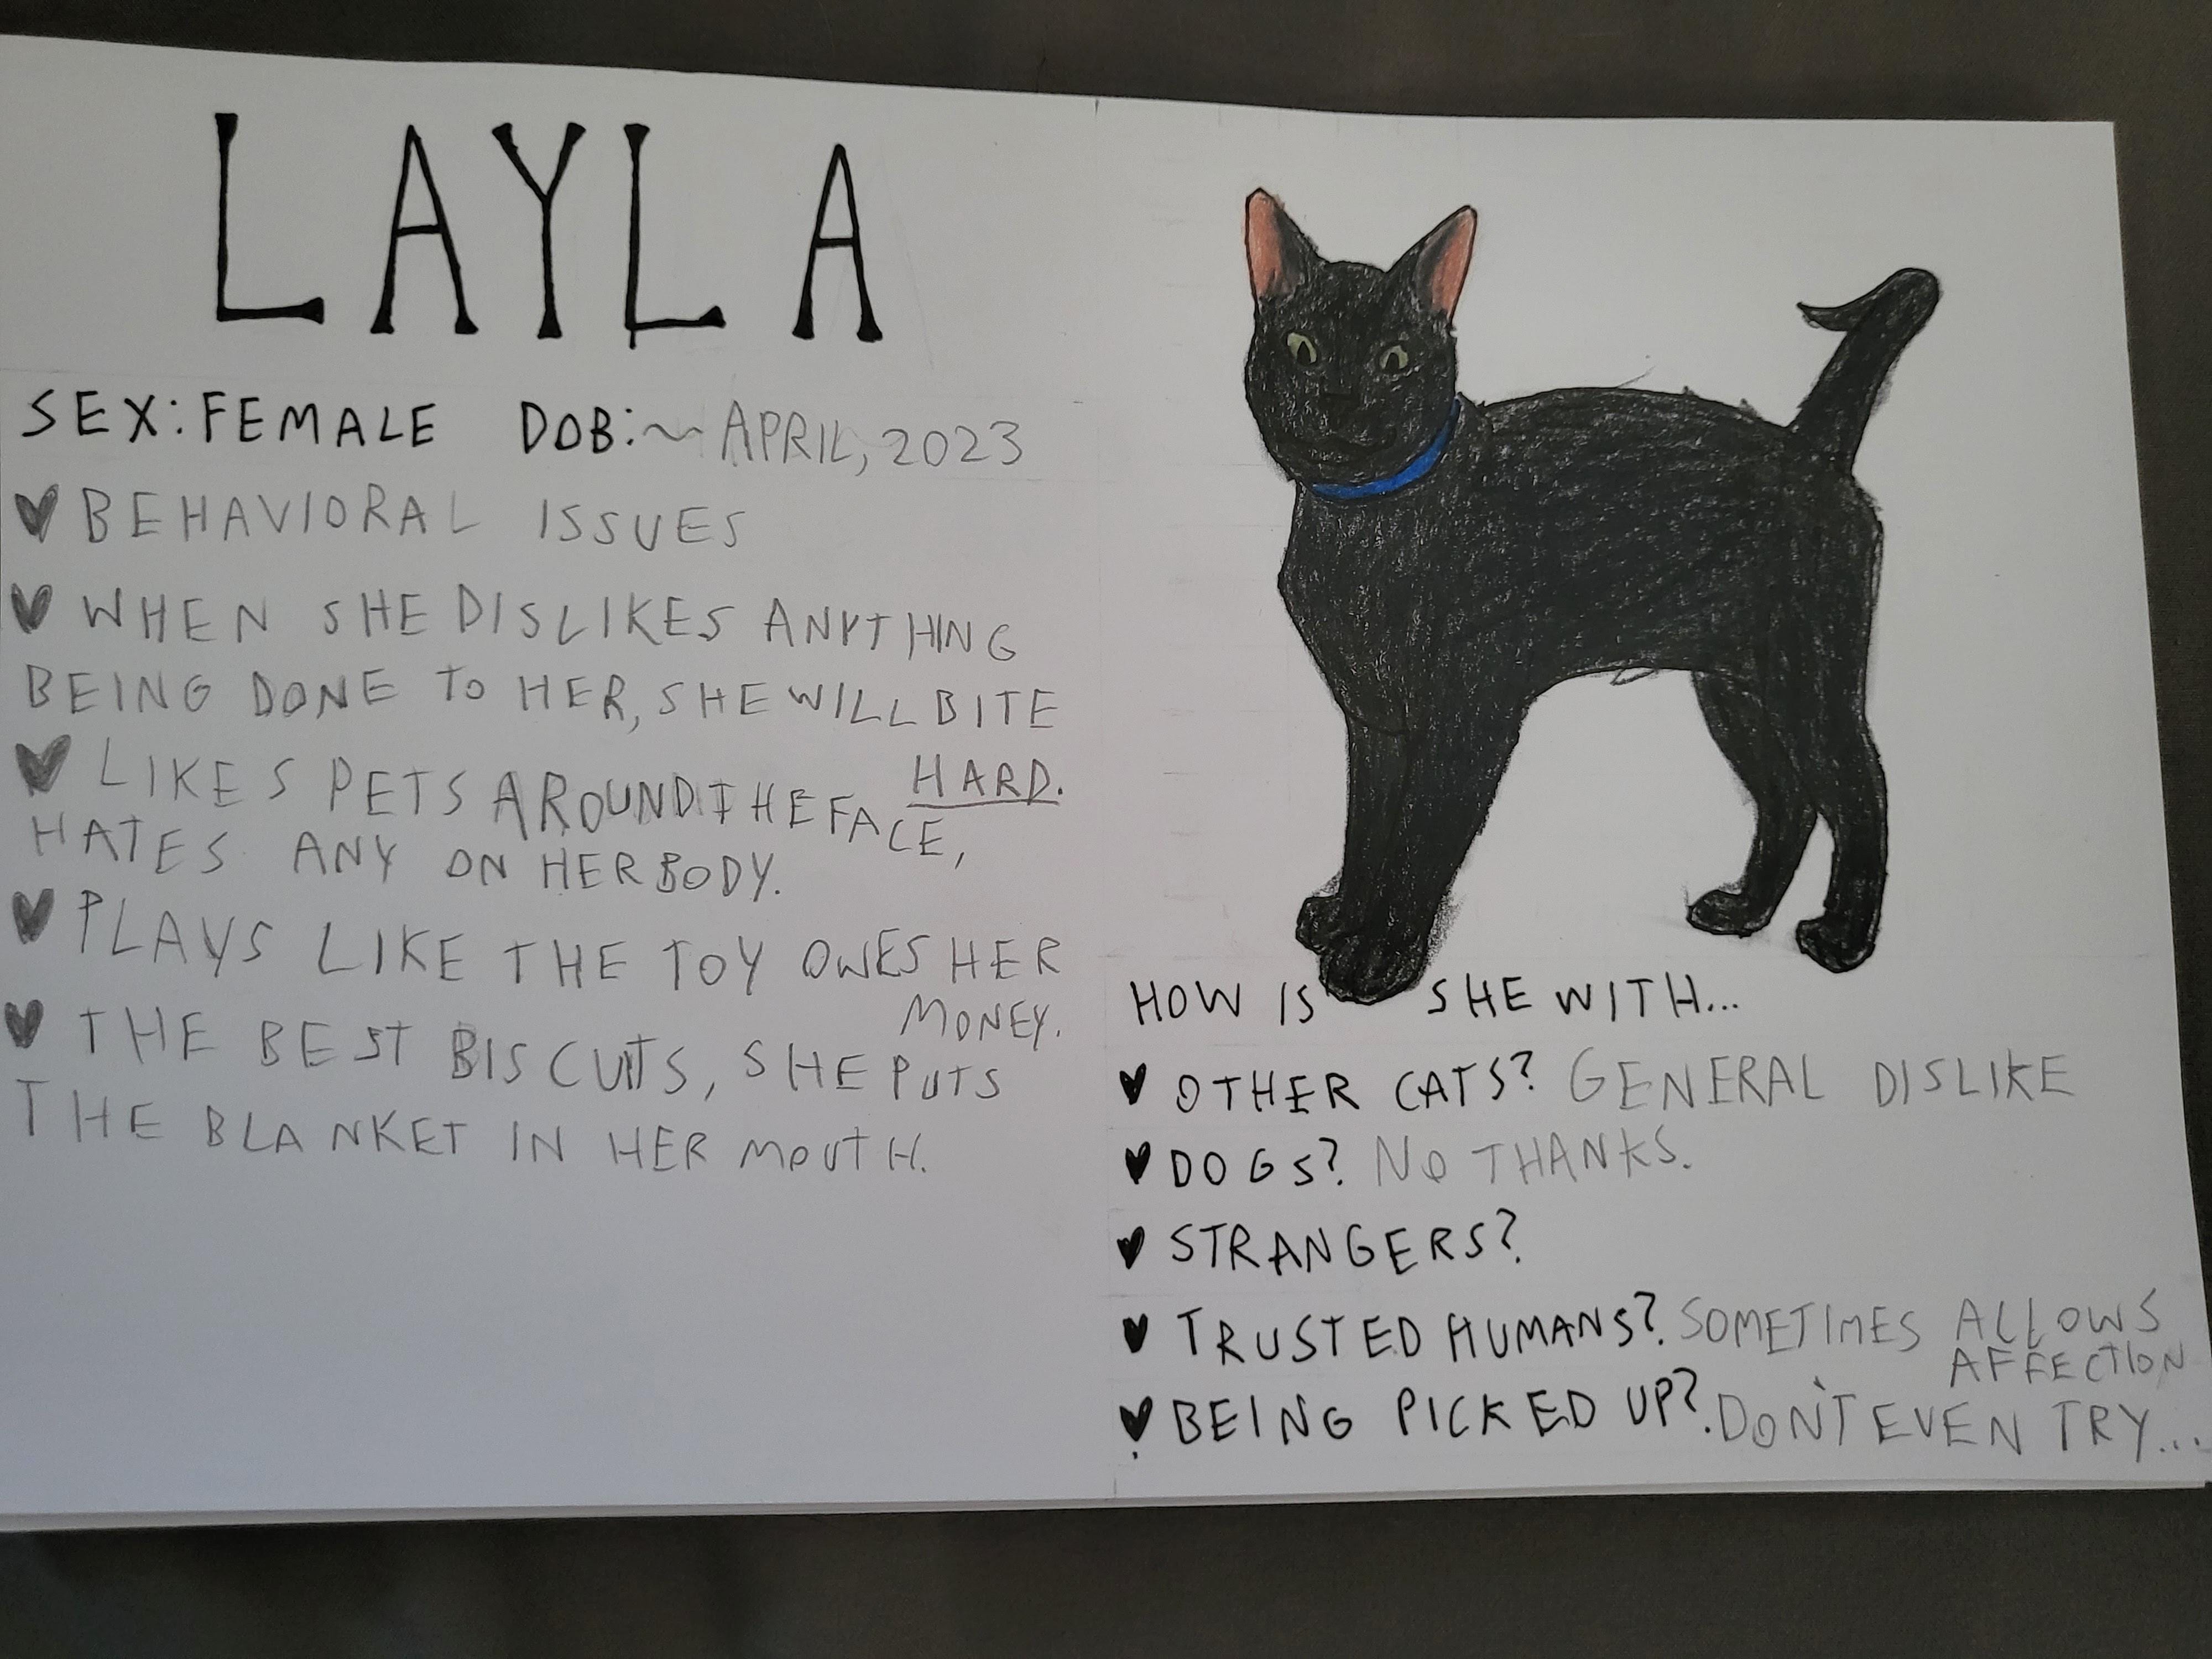 LAYLA
SEX: FEMALE DOB: ~ APRIL, 2023
♥ BEHAVIORAL ISSUES
♥ WHEN SHE DISLIKES ANYTHING
BEING DONE TO HER, SHE WILL BITE
HARD.
♥ LIKES PETS AROUND THE FACE,
HATES ANY ON HER BODY.
♥ PLAYS LIKE THE TOY OWES HER
MONEY.
♥ THE BEST BISCUITS, SHE PUTS
THE BLANKET IN HER MOUTH.
HOW IS SHE WITH...
♥ OTHER CATS? GENERAL DISLIKE
♥ DOGS? NO THANKS.
♥ STRANGERS?
♥ TRUSTED HUMANS? SOMETIMES ALLOWS
AFFECTION
♥ BEING PICKED UP? DON'T EVEN TRY...